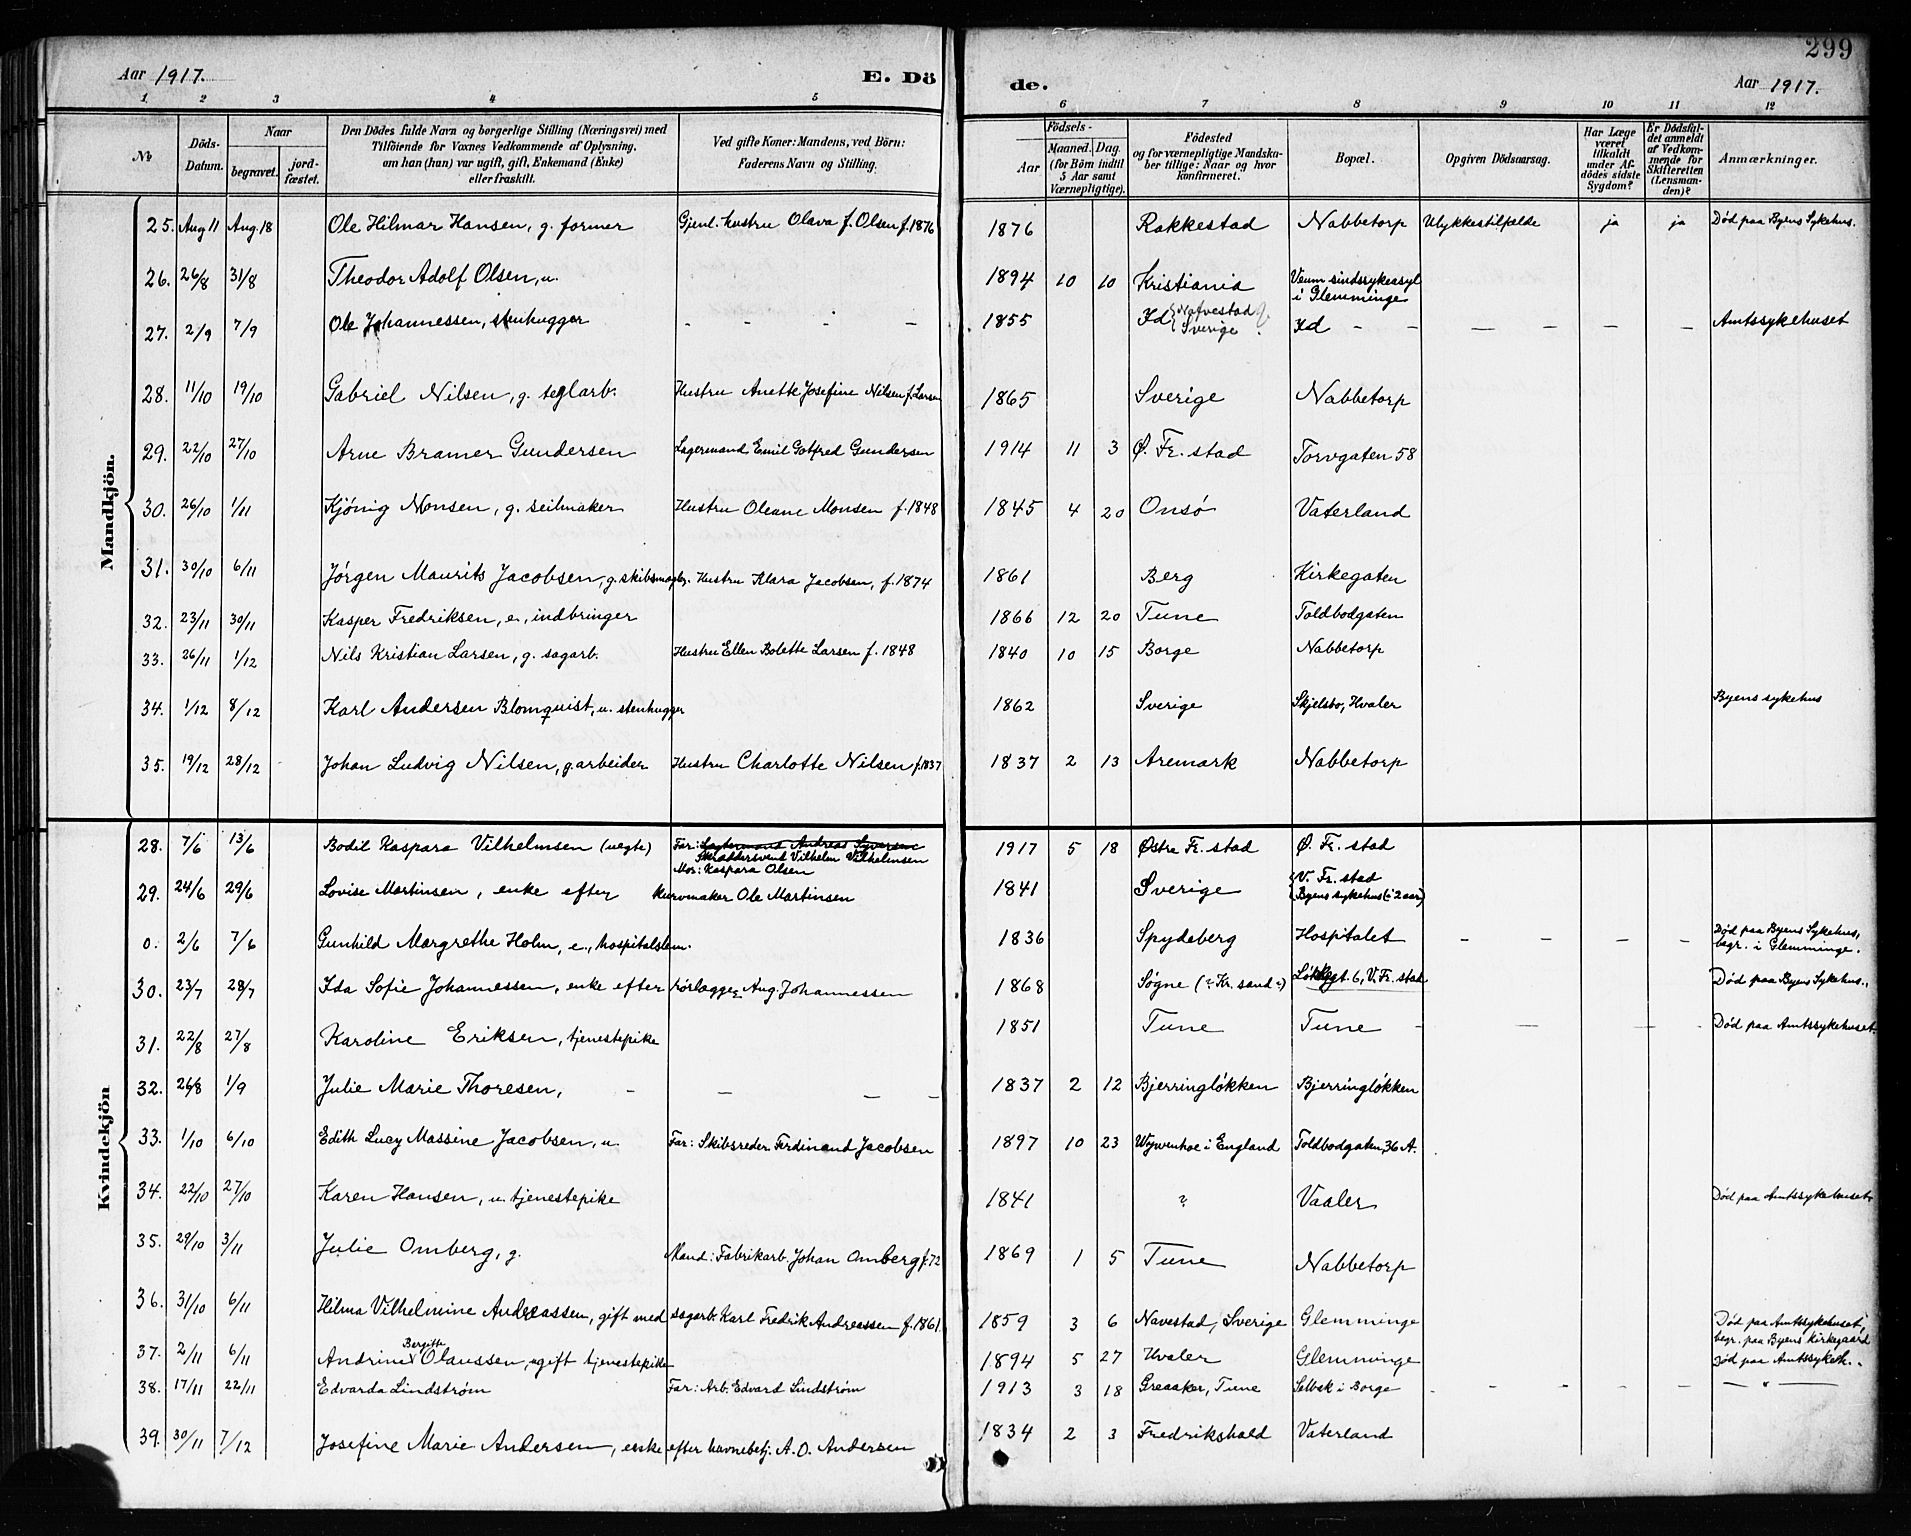 299
Aar 1917. E. Dö de. Aar 1917.
1. 2 3 4 5 6 7 8 9 10 11 12
No
Döds-Datum.
Naar
begravet.
jord-fæstet.
Den Dödes fulde Navn og borgerlige Stilling (Næringsvei) med
Tilföiende for Voxnes Vedkommende af Oplysning.
om han (han) var ugift, gift, Enkemand (Enke)
eller fraskilt.
Ved gifte Koner: Mandens, ved Börn:
Faderens Navn og Stilling.
Födsels-
Aar
Maaned. Dag.
(for Börn indtil
5 Aar samt
Værnepligtige).
Födested
og for værnepligtige Mandska-
ber tillige: Naar og hvor
konfirmeret.
Bopæl.
Opgiven Dödsaarsag.
Har Læge
været
tilkaldt
under Af-
dödes sidste
Sygdom?
Er Dödsfal-
det anmeldt
af Vedkom-
mende for
Skifteretten
(Lensman-
den)?
Anmærkninger.
Mandkjön.
25. Aug 11 Aug. 18 Ole Hilmar Hansen, g. former Gjenl. Hustru Olava f. Olsen f. 1876 1876 Rakkestad Nabbetorp Ulykkestilfelde ja ja Død paa Byens Sykehus.
26. 26/8 31/8 Theodor Adolf Olsen, u. 1894 10 10 Kristiania Veum sindssykeasyl
i Glemminge
27. 2/9 7/9 Ole Johannessen, stenhugger - - - - 1855 Id {Nafvestad
Sverige ? Id - - - - - - - Amtssykehuset
28. 11/10 19/10 Gabriel Nilsen, g. teglarb. Hustru Anette Josefine Nilsen f. Larsen 1865 Sverige Nabbetorp
29. 22/10 27/10 Arne Bramer Gundersen Lagermand Emil Gotfred Gundersen 1914 11 3 Ø. Fr. stad Torvgaten 58
30. 26/10 1/11 Kjönig Monsen, g. seilmaker Hustru Oleane Monsen f. 1848 1845 4 20 Onsø Vaterland
31. 30/10 6/11 Jörgen Maurits Jacobsen, g. skibsmægler. Hustru Klara Jacobsen, f. 1874 1861 Berg Kirkegaten
32. 23/11 30/11 Kasper Fredriksen, e., indbringer 1866 12 20 Tune Toldbodgaten
33. 26/11 1/12 Nils Kristian Larsen, g. sagarb. Hustru Ellen Bolette Larsen f. 1848 1840 10 15 Borge Nabbetorp
34. 1/12 8/12 Karl Andersen Blomquist, u. stenhugger 1862 Sverige Skjelsbo, Hvaler Byens sykehus
35. 19/12 28/12 Johan Ludvig Nilsen, g. arbeider Hustru Charlotte Nilsen f. 1837 1837 2 13 Aremark Nabbetorp
Kvindekjön
28. 7/6 13/6 Bodil Kaspara Vilhelmsen (uegte) Far: Lagermand Andreas Syversen
Skræddersvend Vilhelm Vilhelmsen
Mor: Kaspara Olsen 1917 5 18 Østre Fr. stad Ø. Fr. stad
29. 24/6 29/6 Lovise Martinsen, enke efter Kurvmaker Ole Martinsen 1841 Sverige {V. Fr. stad
Byens sykehus (i 2 aar)
0. 2/6 7/6 Gunhild Margrethe Holm, e., hospitalslem. 1836 Spydeberg Hospitalet - - - - Død paa Byens Sykehus,
begr. i Glemminge.
30. 23/7 28/7 Ida Sofie Johannessen, enke efter rörlægger Aug. Johannessen 1868 Søgne (? Kr. sand ?) gt. 6, V. Fr. stad Død paa Byens Sykehus.
31. 22/8 27/8 Karoline Eriksen, tjenestepike 1851 Tune Tune - - - - Død paa Amtssykehuset.
32. 26/8 1/9 Julie Marie Thoresen, - - - - 1837 2 12 Bjerringlökken Bjerringlökken
33. 1/10 6/10 Edith Lucy Massine Jacobsen, u. Far: Skibsreder Ferdinand Jacobsen 1897 10 23 Wyvenhoe i England Toldbodgaten 36 A.
34. 22/10 27/10 Karen Hansen, u. tjenestepike 1841 ? Vaaler Død paa Amtssykehuset
35. 29/10 3/11 Julie Omberg, g. Mand: Fabrikarb. Johan Omberg f. 72 1869 1 5 Tune Nabbetorp
36. 31/10 6/11 Hilma Vilhelmine Andreassen, gift med sagarb. Karl Fredrik Andreassen f. 1861. 1859 3 6 Navestad, Sverige Glemminge Død paa Amtssykehuset,
begr. paa Byens Kirkegaard
37. 2/11 6/11 Andrine Bergitte Olaussen, ugift tjenestepike 1894 5 27 Hvaler Glemminge Død paa Amtssykeh.
38. 17/11 22/11 Edvarda Lindstrøm Far: Arb. Edvard Lindstrøm 1913 3 18 Greaaker, Tune Selbak i Borge - - - - - " -
39. 30/11 7/12 Josefine Marie Andersen, enke efter havnebetj. A. O. Andersen 1834 2 3 Fredrikshald Vaterland